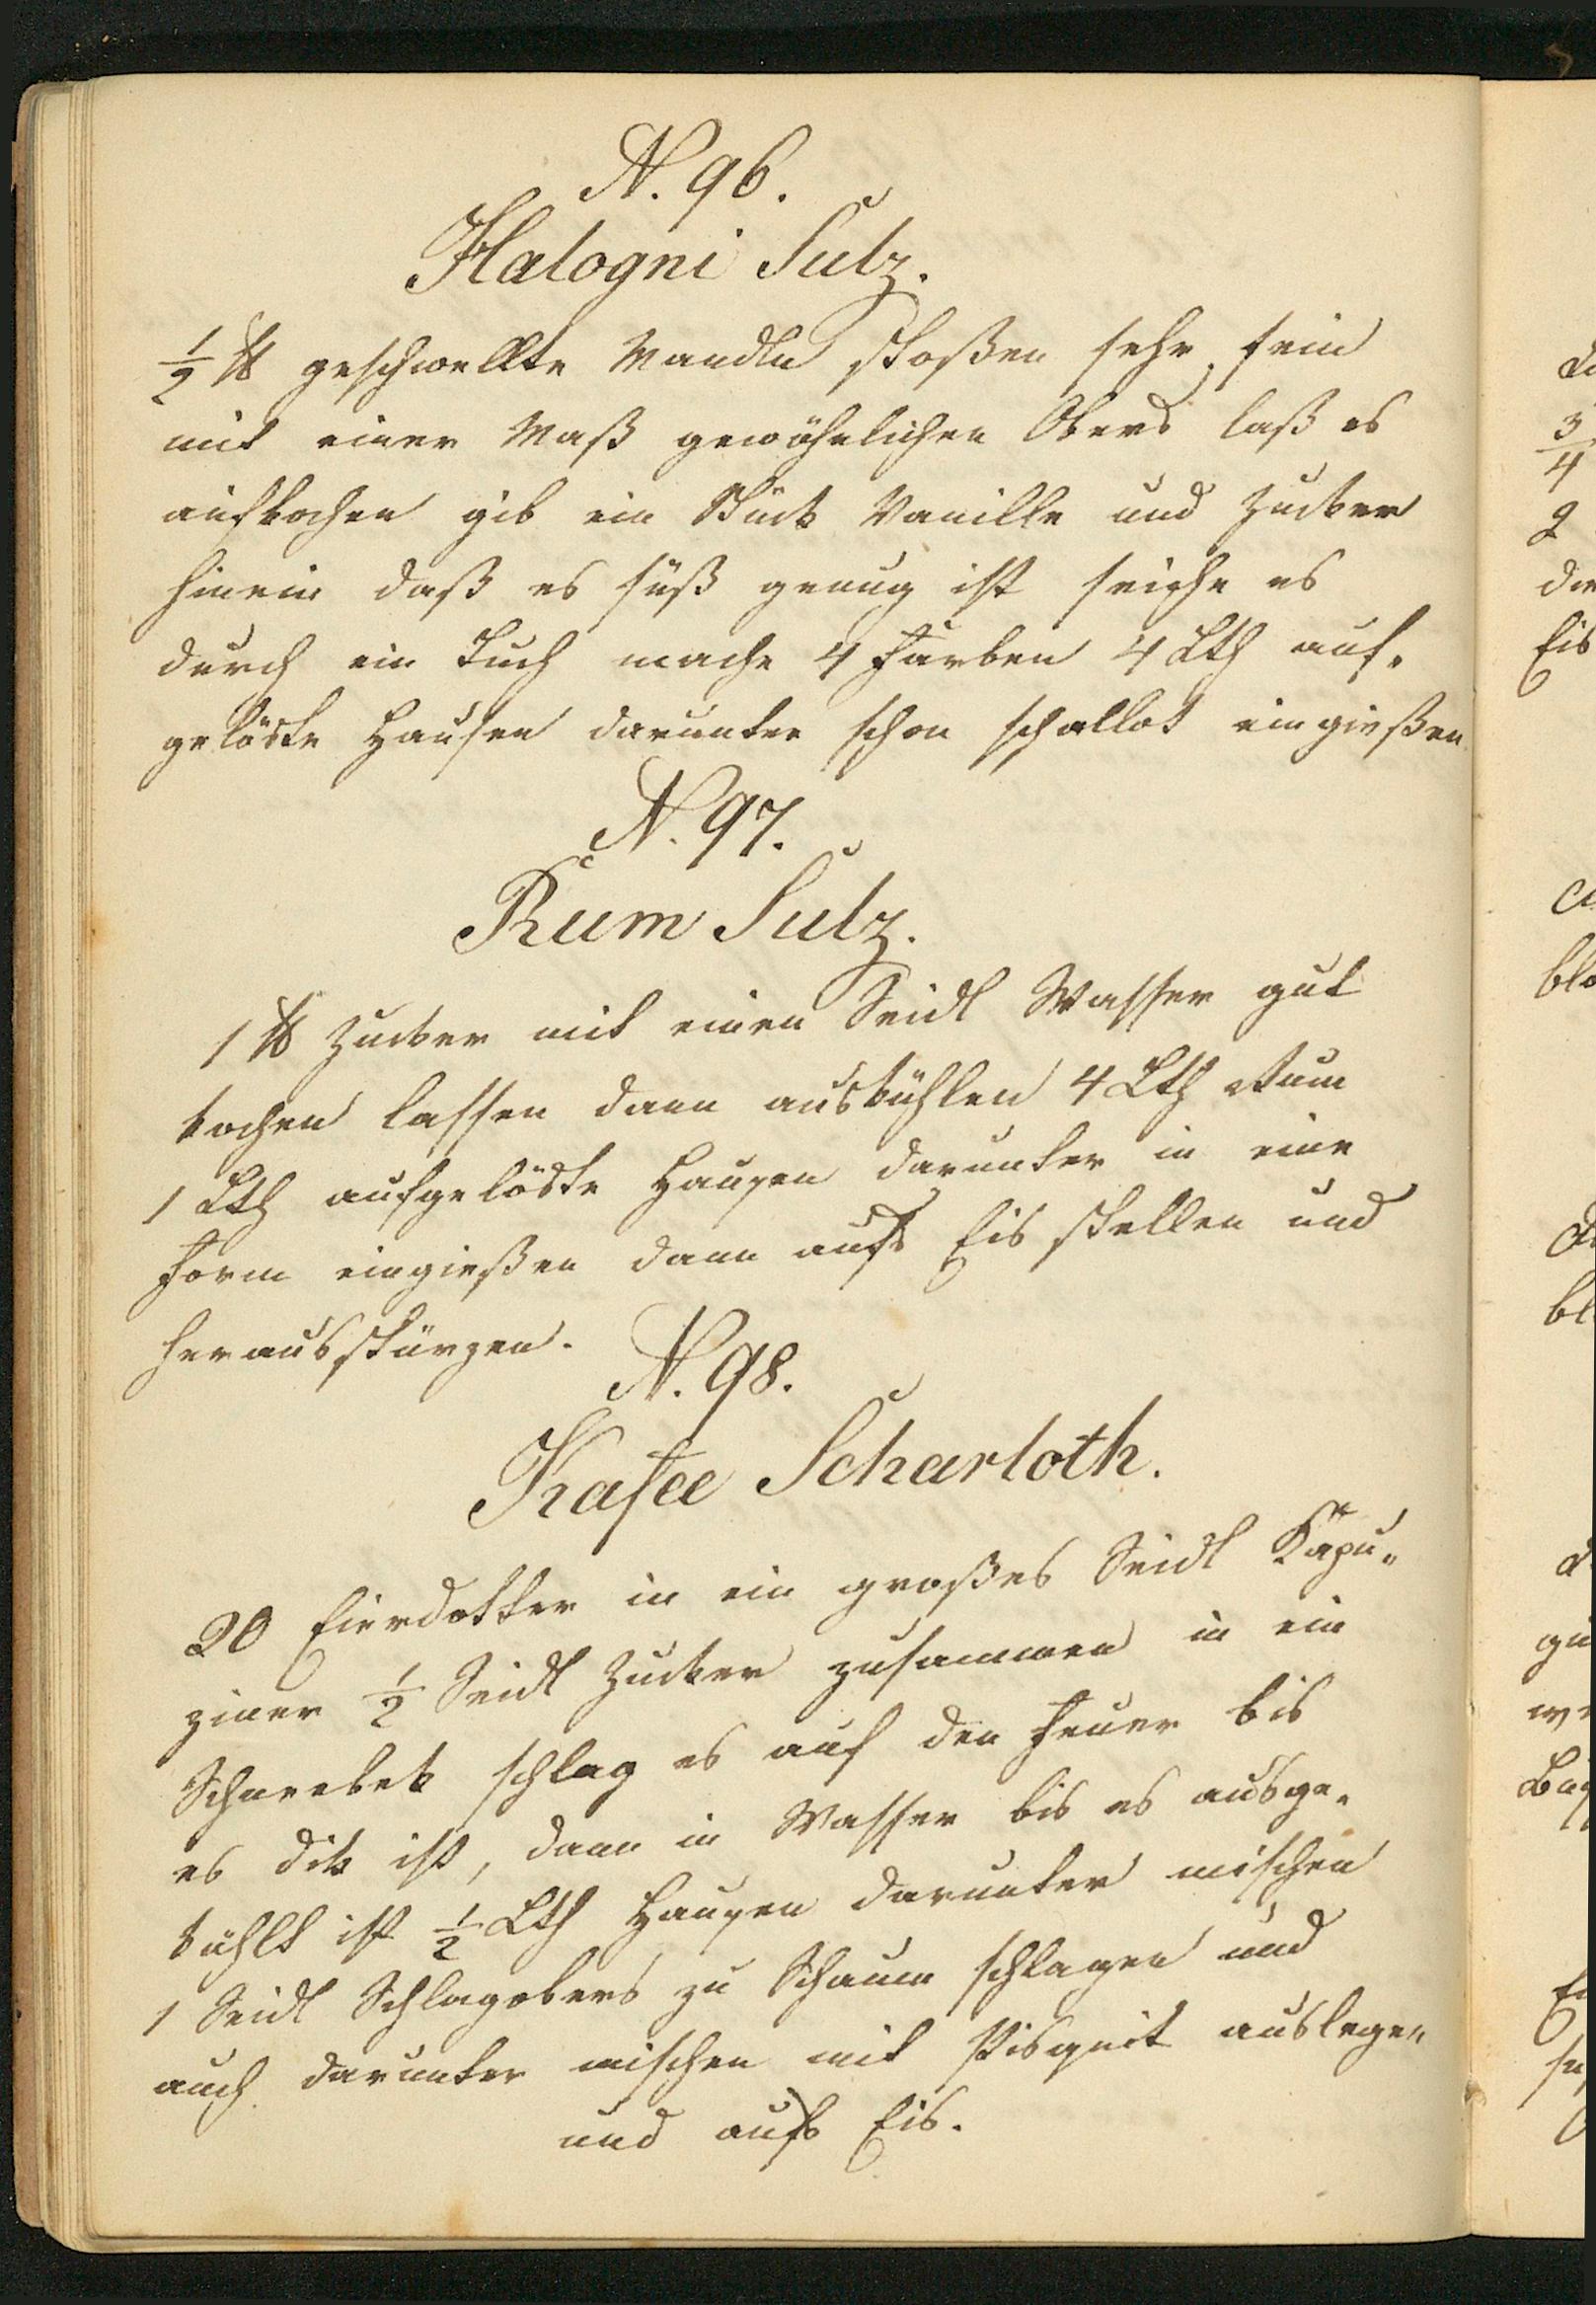 N. 96.
Halogni Sulz.
½ ℔ geschwellte Mandln stoßen sehr fein
mit einer Maß gewöhnlichen Obers laß es
aufkochen gib ein Stück Vanille und Zucker
hinein daß es süß genug ist seiche es
durch ein Tuch mache 4 Farben 4 Lth auf-
gelöste Hausen darunter schon schallot eingießen
N. 97.
Rum Sulz.
1 ℔ Zucker mit einen Seidl Wasser gut
kochen lassen dann auskühlen 4 Lth Rum
1 Lth aufgelöste Hausen darunter in eine
Form eingießen dann aufs Eis stellen und
herausstürzen.
N. 98.
Kafee Scharloth.
20 Eierdotter in ein großes Seidl Kapu-
ziner ½ Seidl Zucker zusammen in ein
Schneebek schlag es auf den Feuer bis
es dik ist, dann in Wasser bis es ausge-
kühlt ist ½ Lth Hausen darunter mischen
1 Seidl Schlagobers zu Schaum schlagen und
auch darunter mischen mit Pisquit auslegen
und aufs Eis.